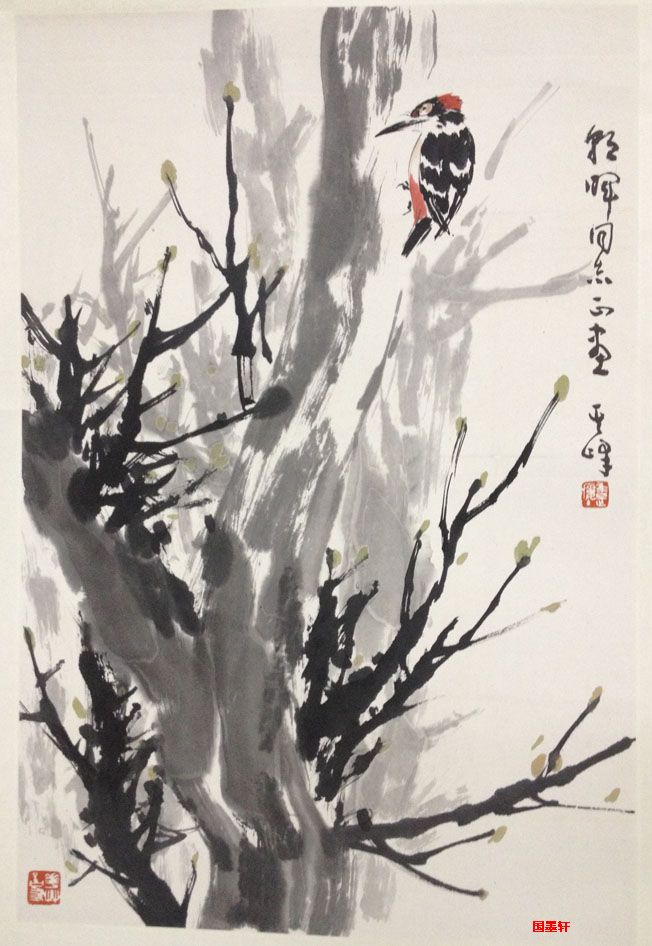 朝晖同志正画
其峰
国墨轩